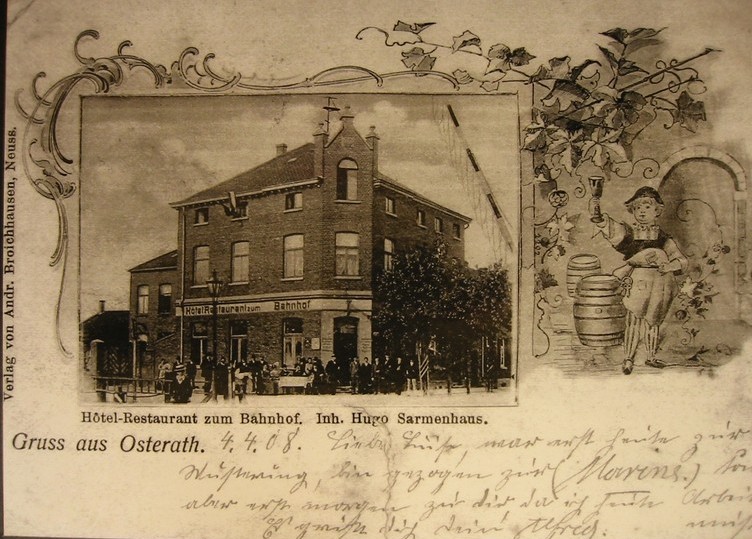 Verlag von Andr. Broichhausen, Neuss.
Hôtel Restaurant zum Bahnhof
Hôtel-Restaurant zum Bahnhof. Inh. Hugo Sarmenhaus.
Gruss aus Osterath. 4.4.08. Liebe Luise, war erst heute zur
Musterung, bin gezogen zur (Marine.)
aber erst morgen zu dir da ich heute Arbeit
Es grüßt dich dein Alfred.